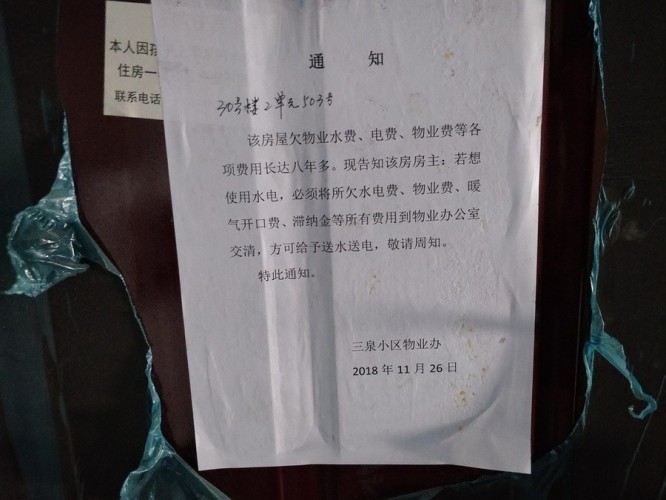 本人因孩
住房一
联系电话
通 知
30号楼2单元503号
该房屋欠物业水费、电费、物业费等各
项费用长达八年多。现告知该房房主：若想
使用水电，必须将所欠水电费、物业费、暖
气开口费、滞纳金等所有费用到物业办公室
交清，方可给予送水送电，敬请周知。
特此通知。
三泉小区物业办
2018 年 11 月 26 日